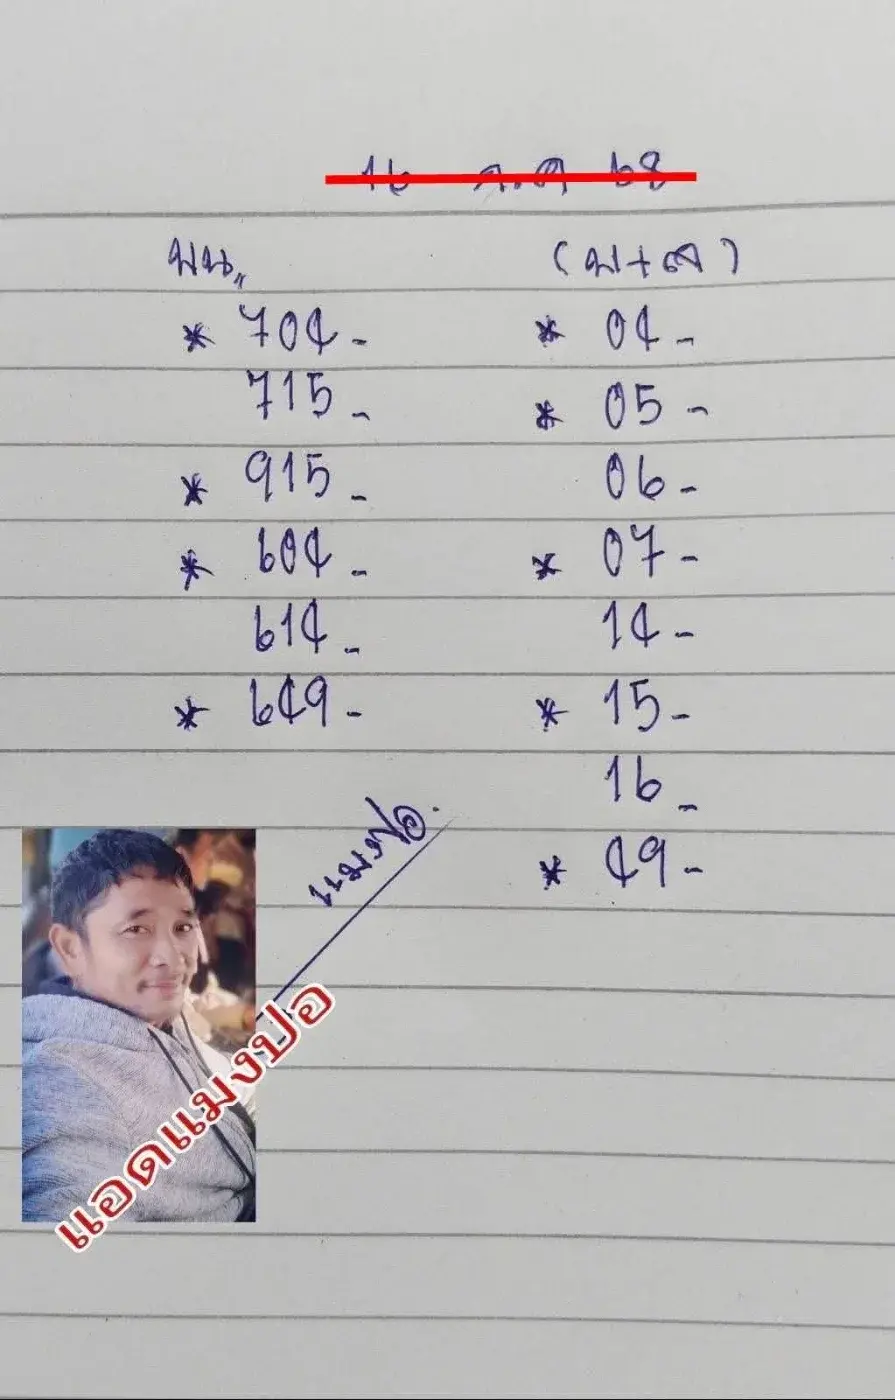 16 ต.ค 68
บน,,
(บ+ล)
* 704-
715-
* 915-
* 604-
614-
* 649-
* 04-
* 05-
06-
* 07-
14-
* 15-
16-
* 49-
แมงปอ.
แอดแมงปอ